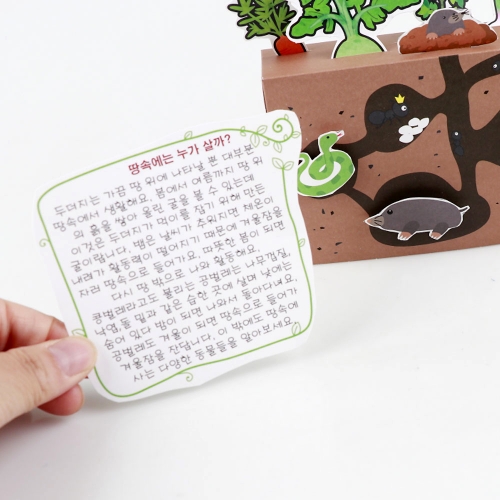 땅속에는 누가 살까?
두더지는 가끔 땅 위에 나타날 뿐 대부분
땅속에서 생활해요. 봄에서 여름까지 땅 위
의 흙을 쌓아 올린 굴을 볼 수 있는데
이것은 두더지가 먹이를 잡기 위해 만든
굴이랍니다. 뱀은 날씨가 추워지면 체온이
내려가 활동력이 떨어지기 때문에 겨울잠을
자러 땅속으로 들어가요. 따뜻한 봄이 되면
다시 땅 밖으로 나와 활동해요.
콩벌레라고도 불리는 공벌레는 나무껍질,
낙엽, 돌 밑과 같은 습한 곳에 살며 낮에는
숨어 있다 밤이 되면 나와서 돌아다녀요.
공벌레도 겨울이 되면 땅속으로 들어가
겨울잠을 잔답니다. 이 밖에도 땅속에
사는 다양한 동물들을 알아보세요.